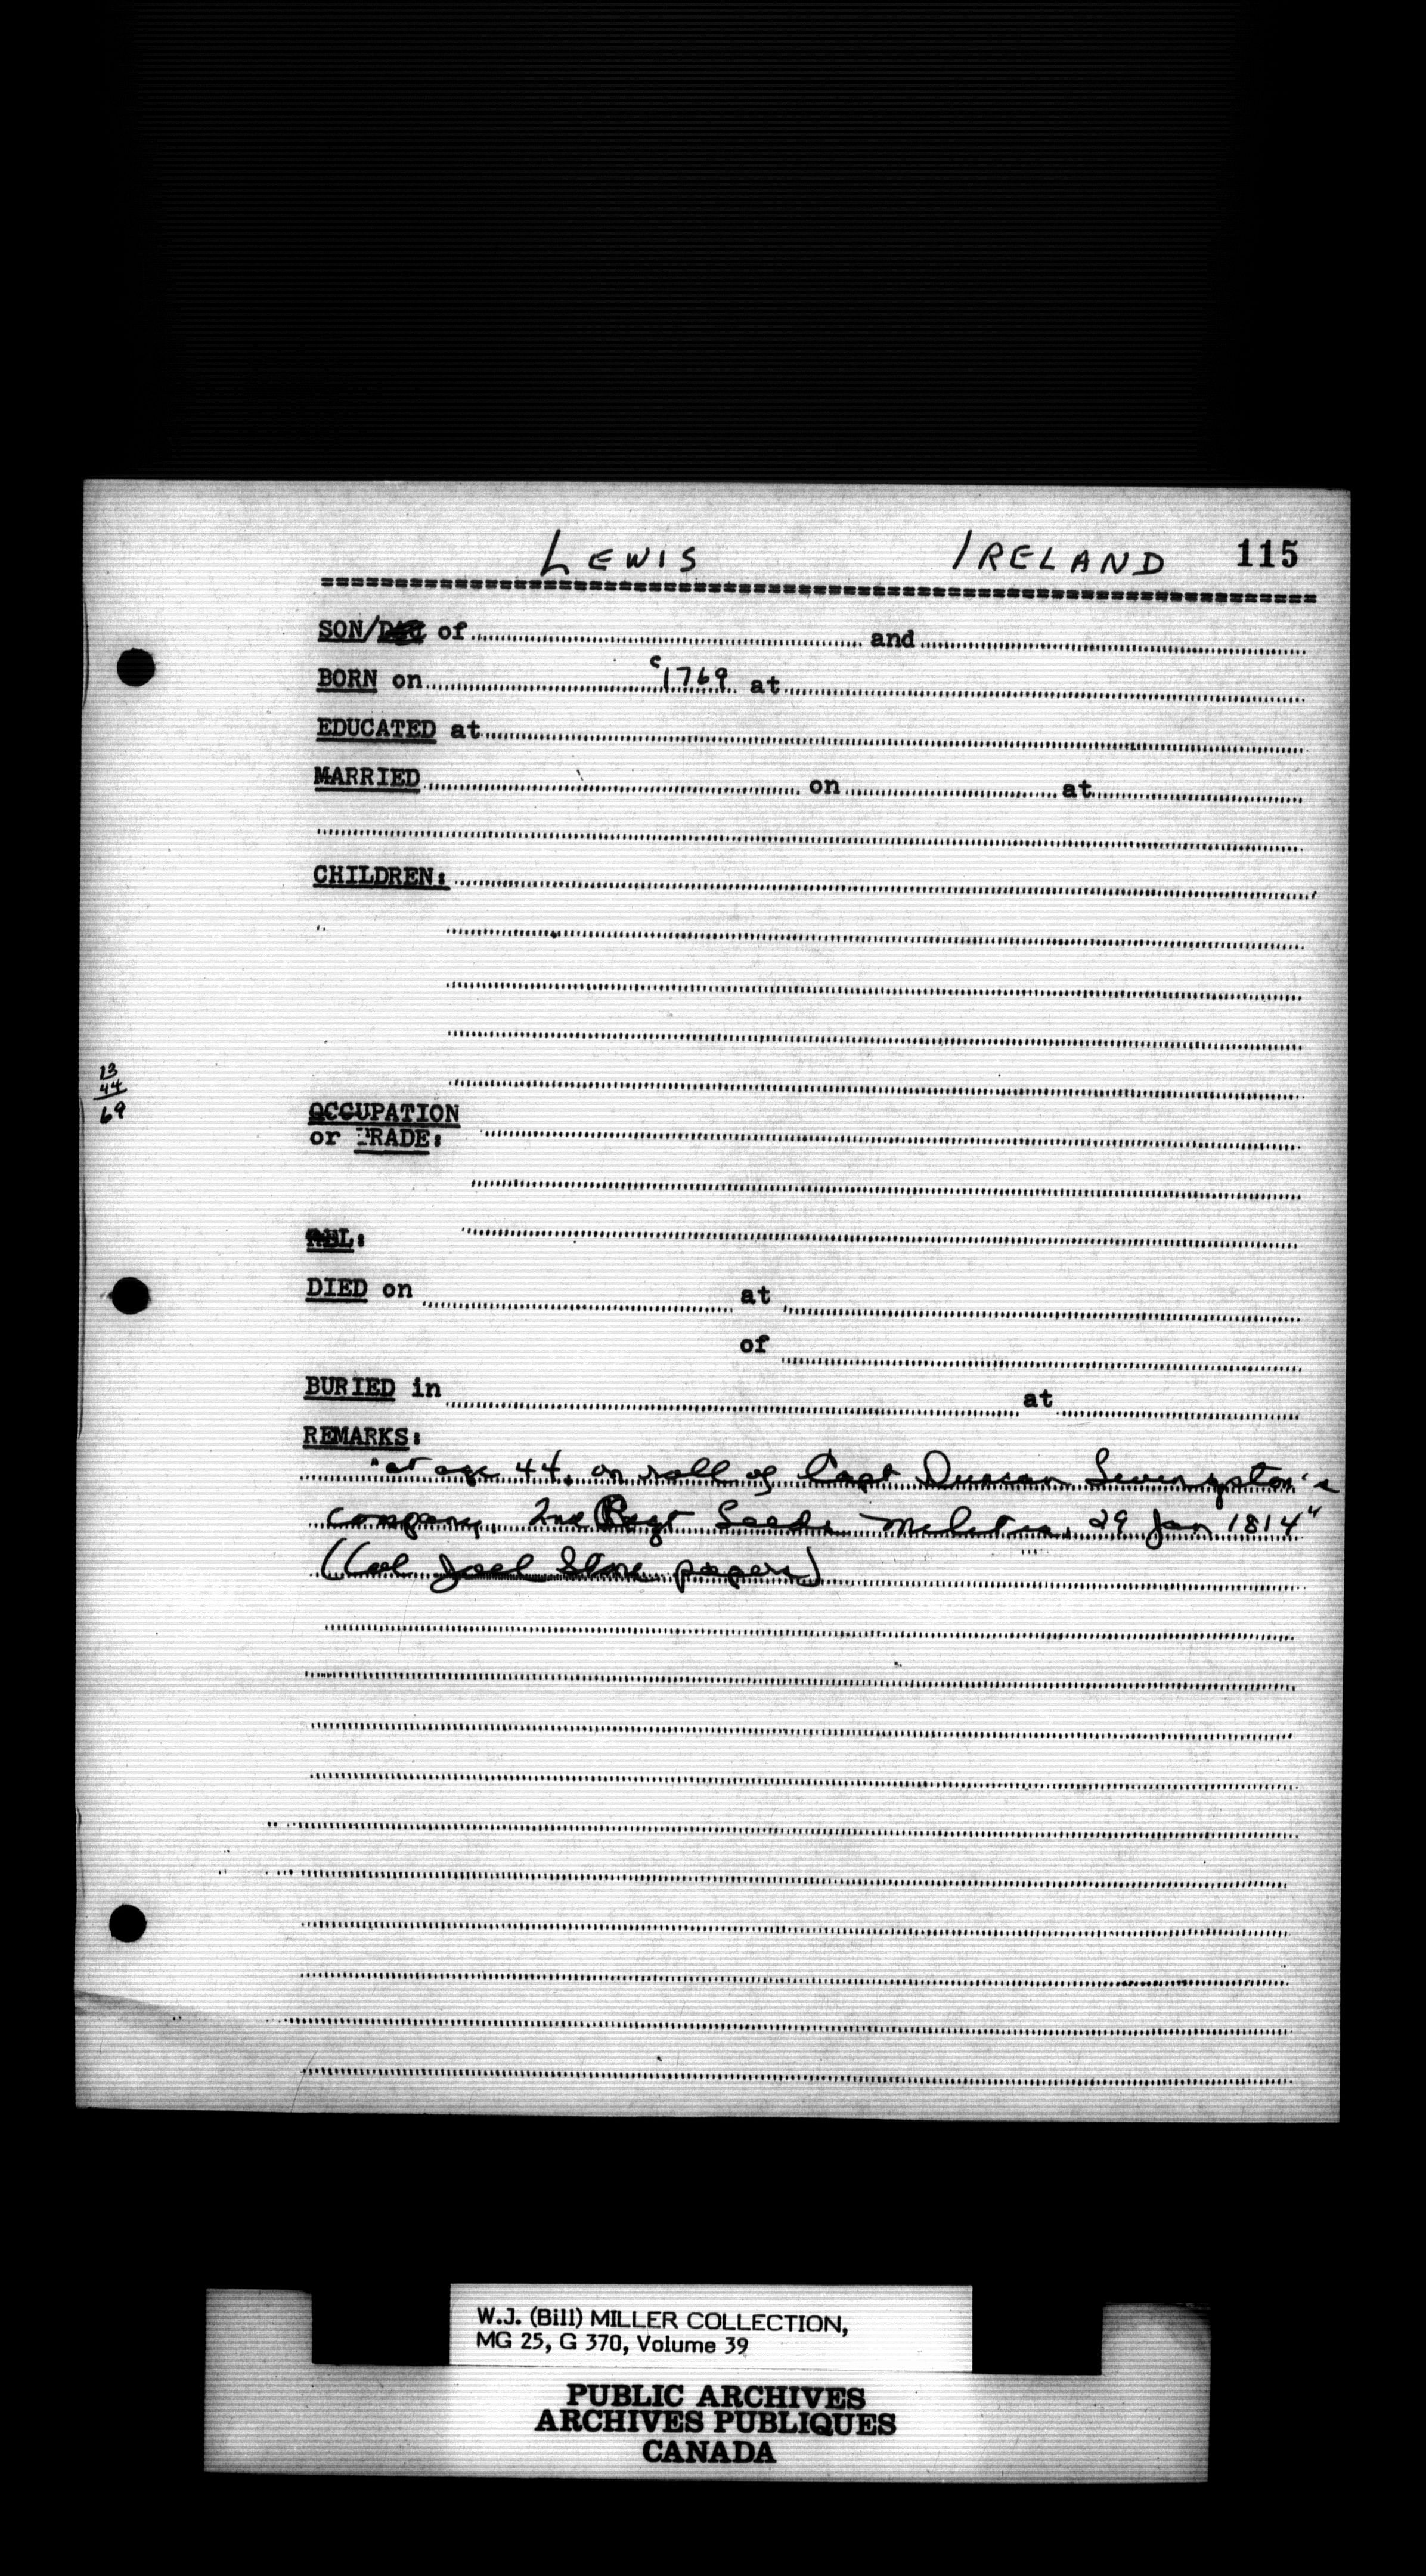 LEWIS IRELAND 115
SON/DAU of and
BORN on c1769 at
EDUCATED at
MARRIED on at
CHILDREN:
13
44
69
OCCUPATION
or TRADE:
REL:
DIED on at
of
BURIED in at
REMARKS:
"at age 44, on roll of Capt Duncan Livingston's
company, 2nd Regt Leeds Militia, 29 Jan 1814"
(Col Joel Stone papers)
W.J. (Bill) MILLER COLLECTION,
MG 25, G 370, Volume 39
PUBLIC ARCHIVES
ARCHIVES PUBLIQUES
CANADA